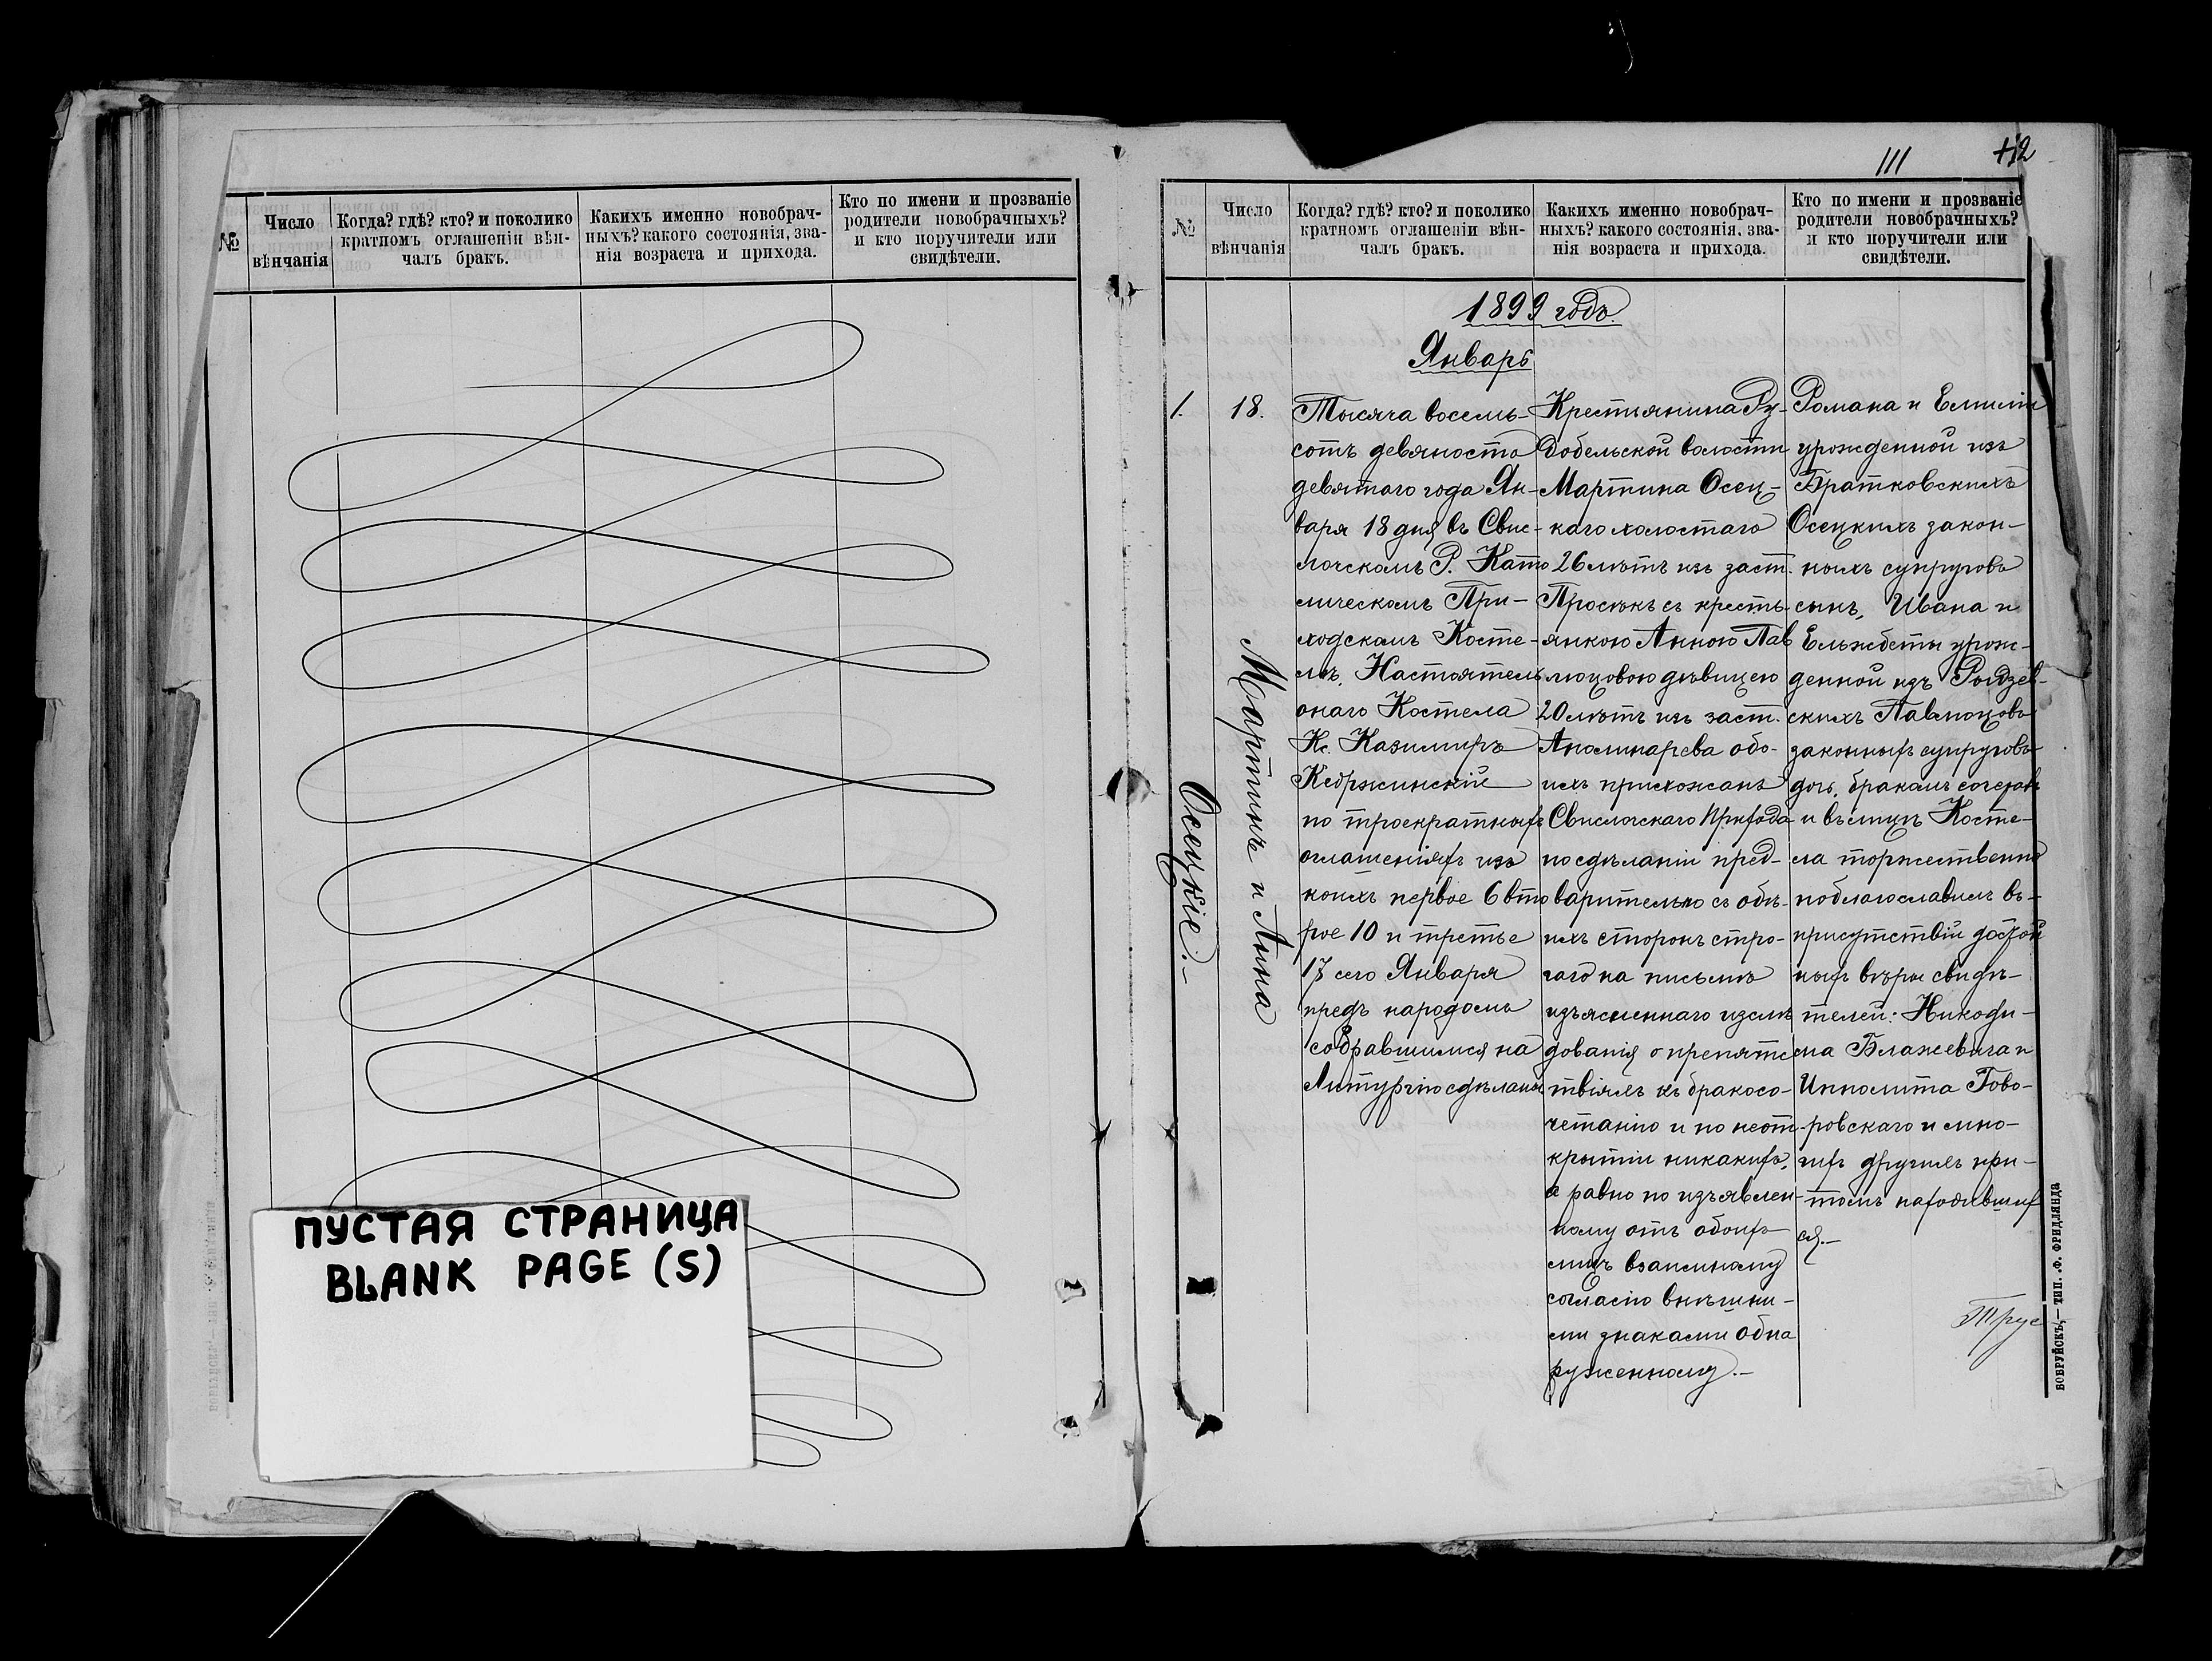 №
Число
вѣнчанія
Когда? гдѣ? кто? и поколико
кратномъ оглашеніи вѣн-
чалъ бракъ.
Какихъ именно новобрач-
ныхъ? какого состоянія, зва-
нія возраста и прихода.
Кто по имени и прозваніе
родители новобрачныхъ?
и кто поручители или
свидѣтели.
ПУСТАЯ СТРАНИЦА
BLANK PAGE (S)
111
№
Число
вѣнчанія
Когда? гдѣ? кто? и поколико
кратномъ оглашеніи вѣн-
чалъ бракъ.
Какихъ именно новобрач-
ныхъ? какого состоянія, зва-
нія возраста и прихода.
Кто по имени и прозваніе
родители новобрачныхъ?
и кто поручители или
свидѣтели.
1899 годъ.
Январь
1.
18.
Мартинъ и Анна
Осецкіе.-
Тысяча восемь-
сотъ девяносто
девятаго года Ян-
варя 18 дня въ Свис-
лочскомъ Р. Като
лическомъ При-
ходскомъ Косте-
лѣ. Настоятель
онаго Костела
Кс. Казимиръ
Кедржинскій
по троекратныхъ
оглашеніяхъ изъ
коихъ первое 6 вто
рое 10 и третье
17 сего Января
предъ народомъ
собравшимся на
Литургію сдѣланы
Крестьянина Ру-
добельской волости
Мартина Осец-
каго холостаго
26 лѣтъ изъ заст.
Просѣкъ съ кресть-
янкою Анною Пав
люцовою дѣвицею
20 лѣтъ изъ заст.
Аполинарева обо-
ихъ прихожанъ
Свислочскаго Прихода
по сдѣланіи пред-
варительно съ обѣ-
ихъ сторонъ стро-
гаго на письмѣ
изъясненнаго изслѣ
дованія о препятс
твіяхъ къ бракосо-
четанію и по неот-
крытіи никакихъ,
а равно по изъявлен-
ному отъ обоихъ
лицъ взаимному
согласію внѣшни-
ми знаками обна
руженному.-
Романа и Емиліи
урожденной изъ
Братковскихъ
Осецкихъ закон-
ныхъ супруговъ
сынъ, Ивана и
Ельжбеты урож-
денной изъ
скихъ Павлюцовъ
законныхъ супруговъ
дочь, бракомъ сочеталъ
и въ лицѣ Косте-
ла торжественно
поблагословилъ въ-
присутствіи достой
ныхъ вѣры свидѣ-
телей: Никоди-
ма Блажевича и
Ипполита Гово-
ровскаго и мно-
гихъ другихъ при-
томъ находивших
ся.-
БОБРУЙСКЪ,—ТИП. Ф. ФРИДЛЯНДА